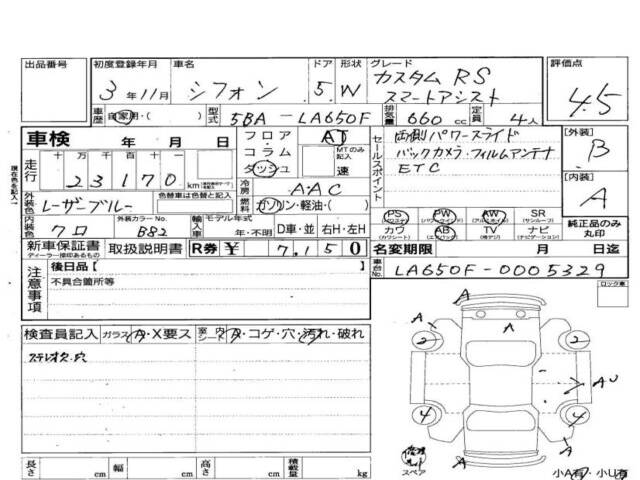 出品番号 初度登録年月 車名 ドア 形状 グレード 評価点
3年11月 シフォン 5 W カスタム RS スマートアシスト 4.5
車歴 自家用・( ) 型式 5BA-LA650F 排気量 660 cc 定員 4人
車検 年 月 日 フロア AT
コラム MTのみ記入
ダッシュ 速
セールスポイント 両側パワースライド
バックカメラ・フィルムアンテナ
ETC
[外装] B
[内装] A
走行 十 万 千 百 十
23170 km
冷房 AAC
外装色 色替車は色替と記入
レーザーブルー
燃料 ガソリン・軽油・( )
PS PW AW SR
(パワステ) (パワーウインドウ) (アルミホイール) (サンルーフ)
カワ AB TV ナビ
(カワシート) (エアバック) (地デジ) (ナビゲーション)
純正品のみ丸印
内装色 クロ 外装カラーNo. B82 輸入車 モデル年式 年・不明 D車・並 右H・左H
新車保証書 取扱説明書 R券 ¥ 7,150
ディーラー捺印あるもの
名変期限 月 日迄
車台No. LA650F-0005329
注意事項 後日品[ ]
不具合箇所等
ロック車
検査員記入 ガラス A・X要ス 室内シート A・コゲ・穴・汚れ・破れ
ステレオ欠・穴
A
A A
2 2
A
4 4
A
A
スペア
長さ cm 幅 cm 高さ cm 積載量 kg
小A有・小U有
現在色を記入→